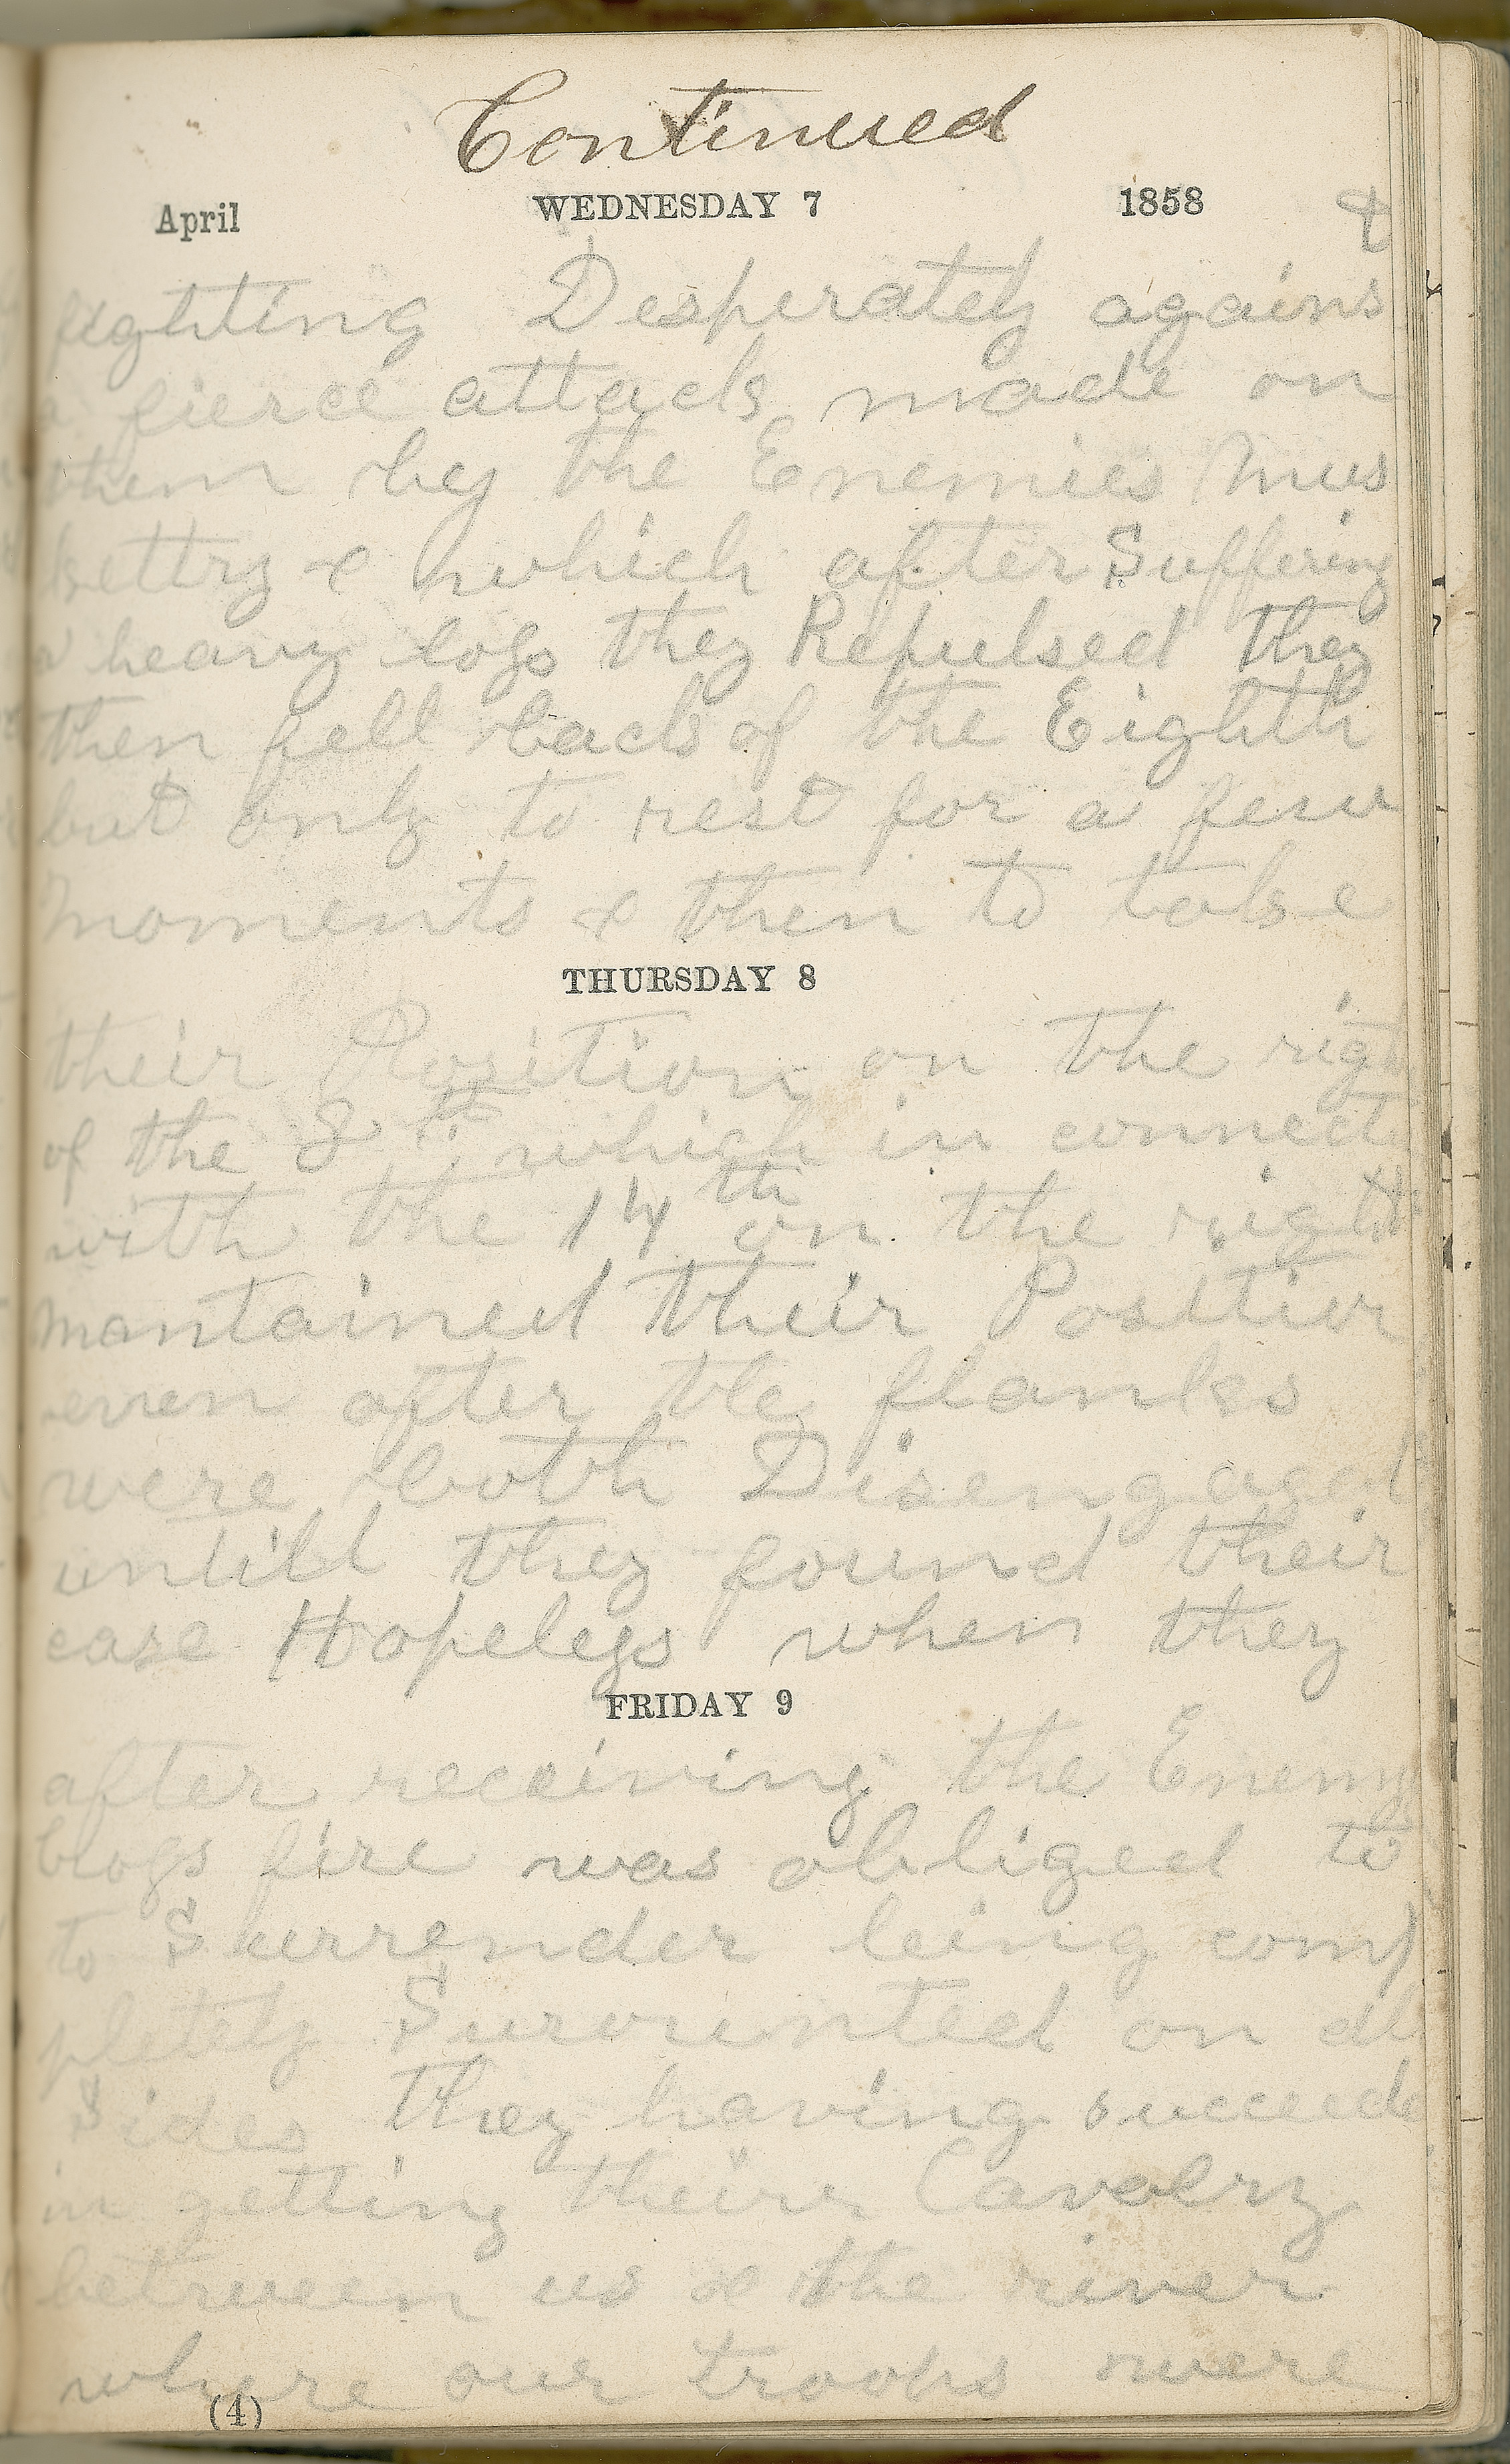 Continued
April WEDNESDAY 7 1858 &
fighting Desperately agains
a fierce attack made on
them by the Enemies Mus
kettry & which after Suffering
a heavy loss they Repulsed they
then fell back of the Eighth
but only to rest for a few
moments & then to take
THURSDAY 8
their Position on the right
of the 8th which in connect
with the 14th on the right
mantained their Position
even after the flanks
were both Disengaged
untill they found their
case Hopeless when they
FRIDAY 9
after receiving the Enemy
fire was obliged to
to Surrender being comp
pletely Surounted on all
Sides they having succeede
in getting their Cavalry
between us & the river
where our troops were
(4)